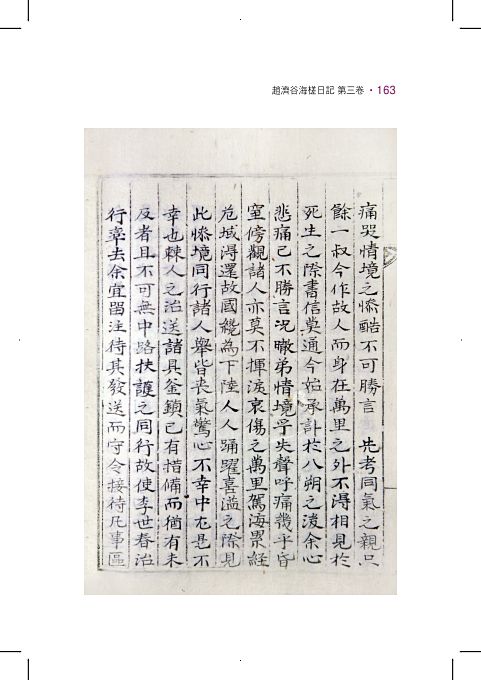 趙濟谷海槎日記 第三卷 · 163
痛哭情境之慘酷不可勝言 先考同氣之親只
餘一叔今作故人而身在萬里之外不得相見於
死生之際書信莫通今始承訃於八朔之後余心
悲痛已不勝言况暾弟情境乎失聲呼痛幾乎昏
窒傍觀諸人亦莫不揮淚哀傷之萬里駕海累經
危域得還故國纔為下陸人人踊躍喜溢之際見
此慘境同行諸人舉皆喪氣驚心不幸中尤是不
幸也棘人之治送諸具釜鎖已有措備而猶有未
及者且不可無中路扶護之同行故使李世春治
行率去余宜留注待其發送而守令接待凡事區